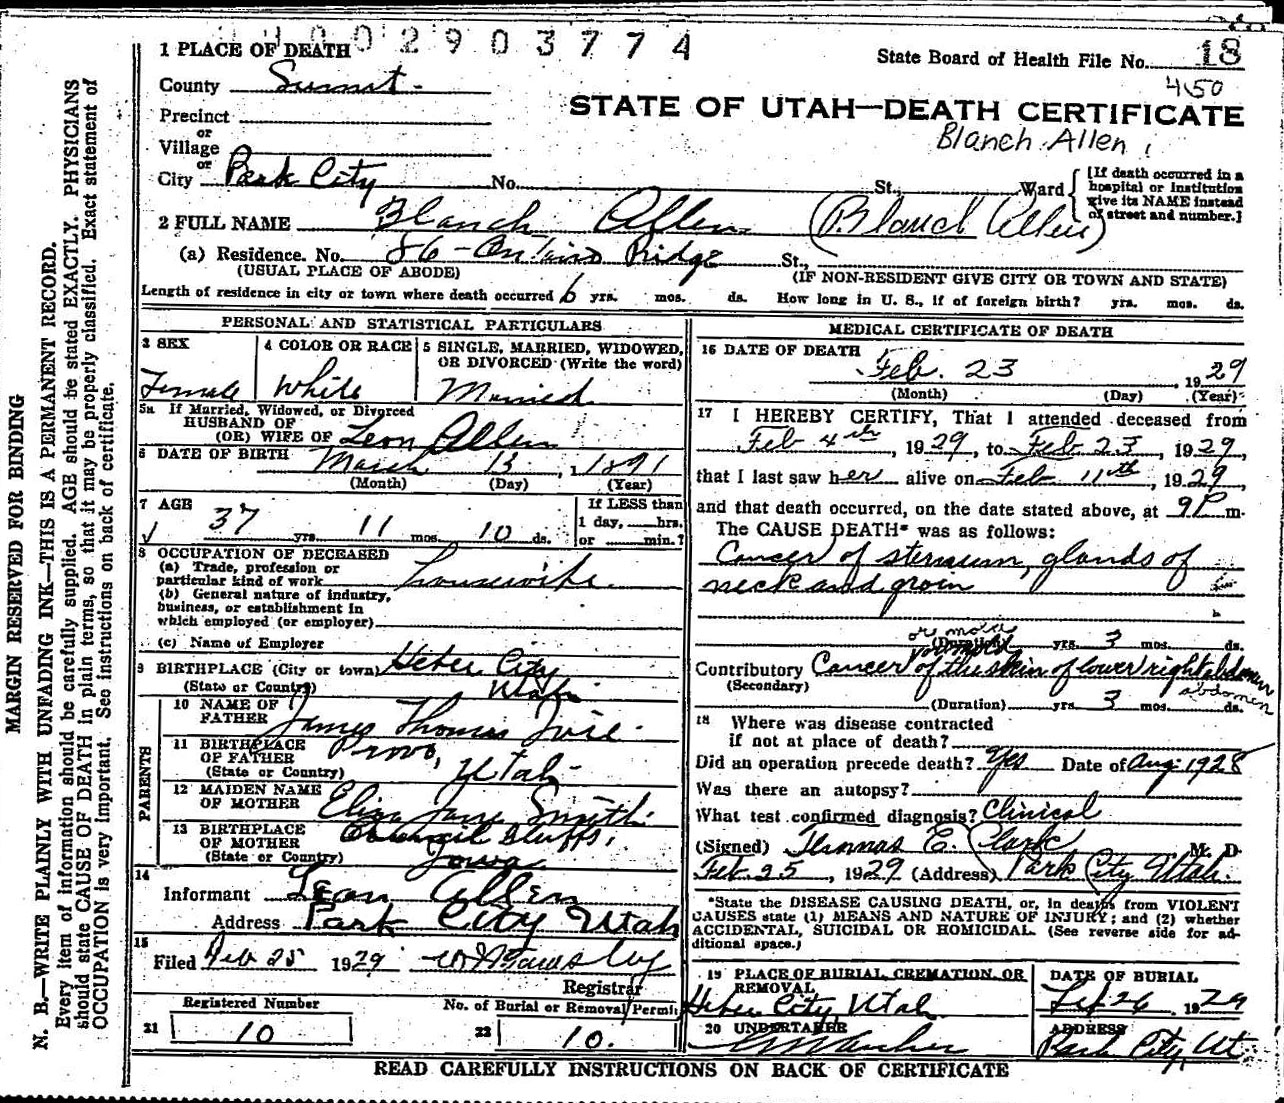 1 PLACE OF DEATH
2903774
State Board of Health File No. 18
County Summit
450
STATE OF UTAH—DEATH CERTIFICATE
Precinct
Blanch Allen
or
Village
or
City Park City No. St., Ward
[If death occurred in a hospital or institution give its NAME instead of street and number.]
2 FULL NAME Blanch Allen (Blanch Allen)
(a) Residence. No. 86 - Ontario Ridge St.,
(USUAL PLACE OF ABODE) (IF NON-RESIDENT GIVE CITY OR TOWN AND STATE)
Length of residence in city or town where death occurred 6 yrs. mos. ds. How long in U. S., if of foreign birth? yrs. mos. ds.
PERSONAL AND STATISTICAL PARTICULARS
3 SEX
Female
4 COLOR OR RACE
White
5 SINGLE, MARRIED, WIDOWED, OR DIVORCED (Write the word)
Married
5a If Married, Widowed, or Divorced
HUSBAND OF
(OR) WIFE OF Leon Allen
6 DATE OF BIRTH March 13, 1891
(Month) (Day) (Year)
7 AGE
37 yrs. 11 mos. 10 ds.
If LESS than
1 day, hrs.
or min.?
8 OCCUPATION OF DECEASED
(a) Trade, profession or
particular kind of work Housewife.
(b) General nature of industry,
business, or establishment in
which employed (or employer)
(c) Name of Employer
9 BIRTHPLACE (City or town) Heber City
(State or Country) Utah
PARENTS
10 NAME OF
FATHER James Thomas
11 BIRTHPLACE
OF FATHER Provo,
(State or Country) Utah
12 MAIDEN NAME
OF MOTHER Eliza Jane Smith
13 BIRTHPLACE
OF MOTHER Council Bluffs,
(State or Country) Iowa
14
Informant Leon Allen
Address Park City Utah
15
Filed Feb 25 1929
Registrar
Registered Number
21 10
No. of Burial or Removal Permit
22 10.
MEDICAL CERTIFICATE OF DEATH
16 DATE OF DEATH
Feb. 23, 1929
(Month) (Day) (Year)
17 I HEREBY CERTIFY, That I attended deceased from
Feb 4th, 1929, to Feb 23, 1929,
that I last saw her alive on Feb 11th, 1929
and that death occurred, on the date stated above, at 9P m.
The CAUSE DEATH* was as follows:
Cancer of sternum, glands of
neck and groin
or more
(Duration) yrs. 3 mos. ds.
Contributory Cancer of the skin of lower right abdomen
(Secondary) abdomen
(Duration) yrs. 3 mos. ds.
18 Where was disease contracted
if not at place of death?
Did an operation precede death? Yes Date of Aug 1928
Was there an autopsy?
What test confirmed diagnosis? Clinical
(Signed) Thomas E. Clark M. D.
Feb. 25, 1929 (Address) Park City Utah.
*State the DISEASE CAUSING DEATH, or, in deaths from VIOLENT
CAUSES state (1) MEANS AND NATURE OF INJURY; and (2) whether
ACCIDENTAL, SUICIDAL OR HOMICIDAL. (See reverse side for ad-
ditional space.)
19 PLACE OF BURIAL, CREMATION, OR
REMOVAL
Heber City, Utah
DATE OF BURIAL
Feb 26 1929
20 UNDERTAKER
ADDRESS
Park City, Ut.
READ CAREFULLY INSTRUCTIONS ON BACK OF CERTIFICATE
MARGIN RESERVED FOR BINDING
N. B.—WRITE PLAINLY WITH UNFADING INK—THIS IS A PERMANENT RECORD.
Every item of information should be carefully supplied. AGE should be stated EXACTLY. PHYSICIANS
should state CAUSE OF DEATH in plain terms, so that it may be properly classified. Exact statement of
OCCUPATION is very important. See instructions on back of certificate.